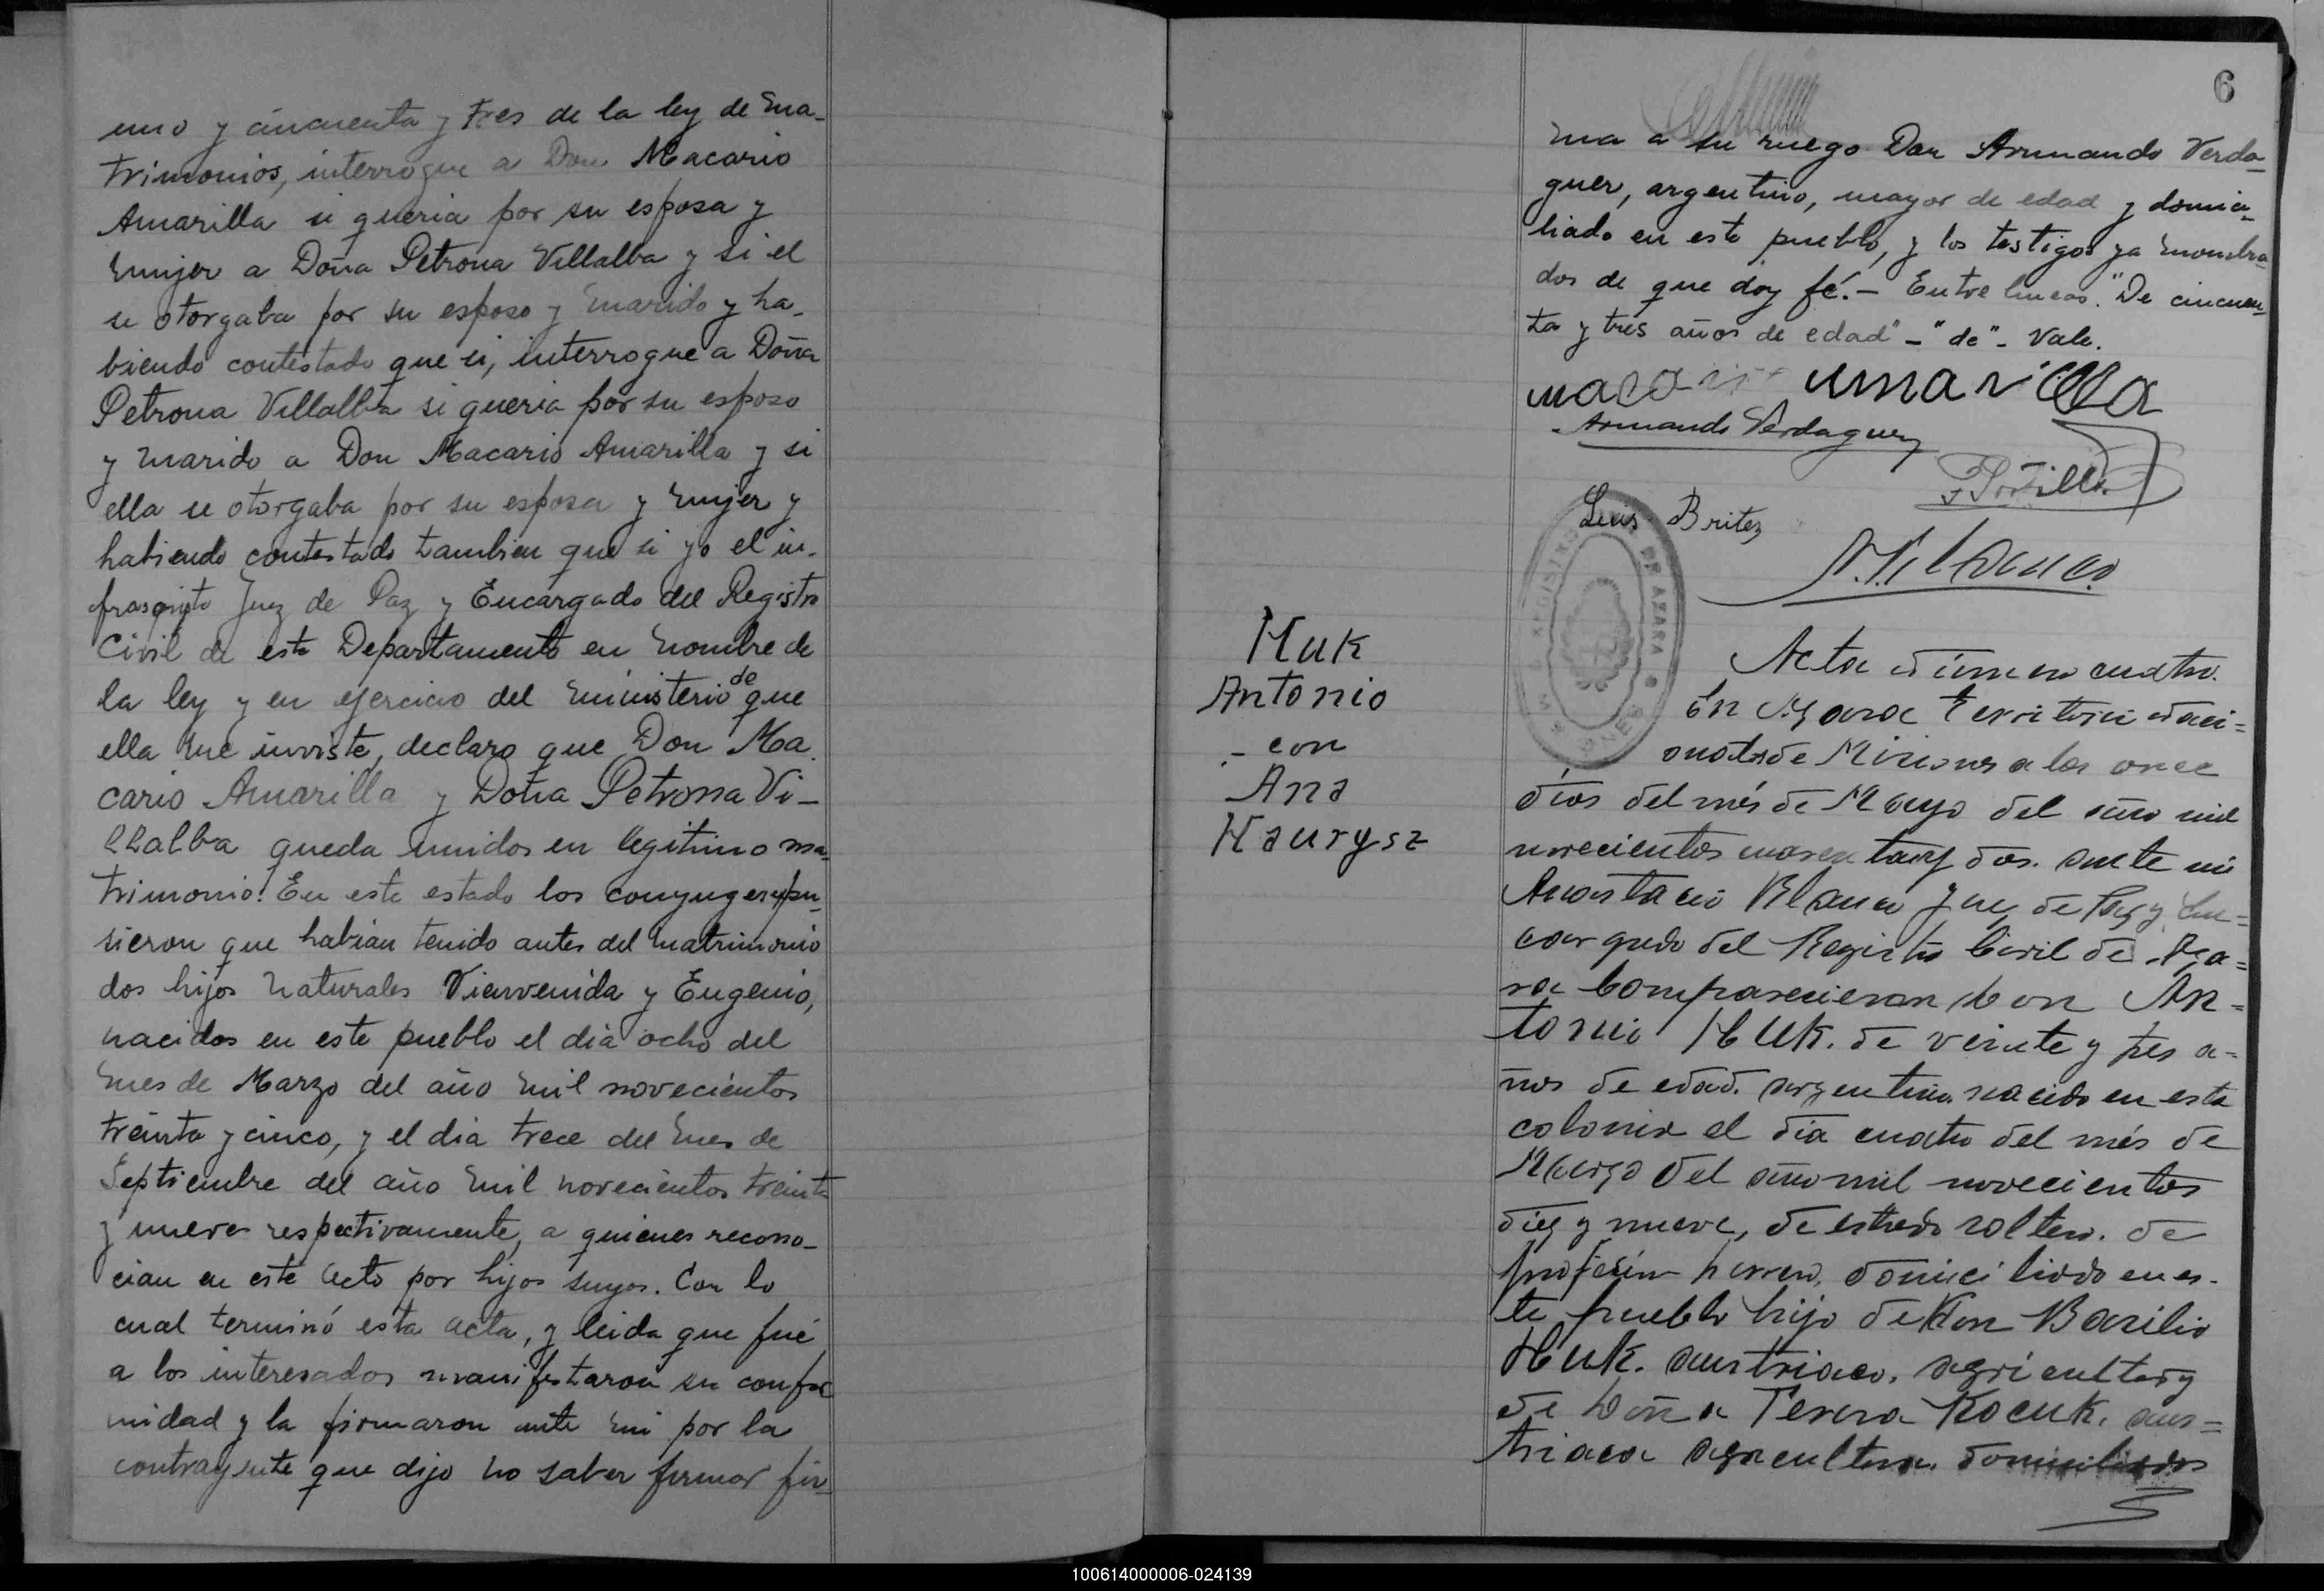 uno y cincuenta y tres de la ley de ma-
trimonios, interrogue a Don Macario
Amarilla si queria por su esposa y
mujer a Doña Petrona Villalba y si el
se otorgaba por su esposo y marido y ha-
biendo contestado que si, interrogue a Doña
Petrona Villalba si queria por su esposo
y marido a Don Macario Amarilla y si
ella se otorgaba por su esposa y mujer y
habiendo contestado tambien que si yo el in-
frascripto Juez de Paz y Encargado del Registro
Civil de este Departamento en nombre de
la ley y en ejercicio del ministerio de que
ella me inviste, declaro que Don Ma-
cario Amarilla y Doña Petrona Vi-
llalba queda unidos en legitimo ma-
trimonio. En este estado los conyuges expu-
sieron que habian tenido antes del matrimonio
dos hijos naturales Vienvenida y Eugenio,
nacidos en este pueblo el dia ocho del
mes de Marzo del año mil novecientos
treinta y cinco, y el dia trece del mes de
Septiembre del año mil novecientos treinta
y nueve respectivamente, a quienes recono-
cian en este acto por hijos suyos. Con lo
cual terminó esta acta, y leida que fué
a los interesados manifestaron su confor
midad y la firmaron ante mi por la
contrayente que dijo no saber firmar fir-
6
ma a su ruego Don Armando Verda-
guer, argentino, mayor de edad y domici-
liado en este pueblo, y los testigos ya nombra-
dos de que doy fé.- Entre lineas: "De cincuen-
ta y tres años de edad" - "de" - Vale.
macario amarilla
Armando Verdaguer
F Portillo
Luis Britez
A. Blanco
REGISTRO DE AZARA MISIONES
Huk
Antonio
- con
Ana
Haurysz
Acta número cuatro.
En Azara Territorio naci=
onal de Misiones a los once
dias del més de Mayo del año mil
novecientos cuarenta y dos. ante mi
Anastacio Blanco Juez de Paz y En=
cargado del Registro Civil de Aza=
ra Comparecieron Don An=
tonio Huk. de veinte y tres a=
ños de edad. argentino. nacido en esta
colonia el dia cuatro del més de
Marzo del año mil novecientos
diez y nueve, de estado soltero. de
profesión herrero, domiciliado en es-
te pueblo hijo de Don Basilio
Huk. austriaco. agricultor y
de Doña Teresa Kocuk. aus=
triaca agricultora. domiciliados
100614000006-024139